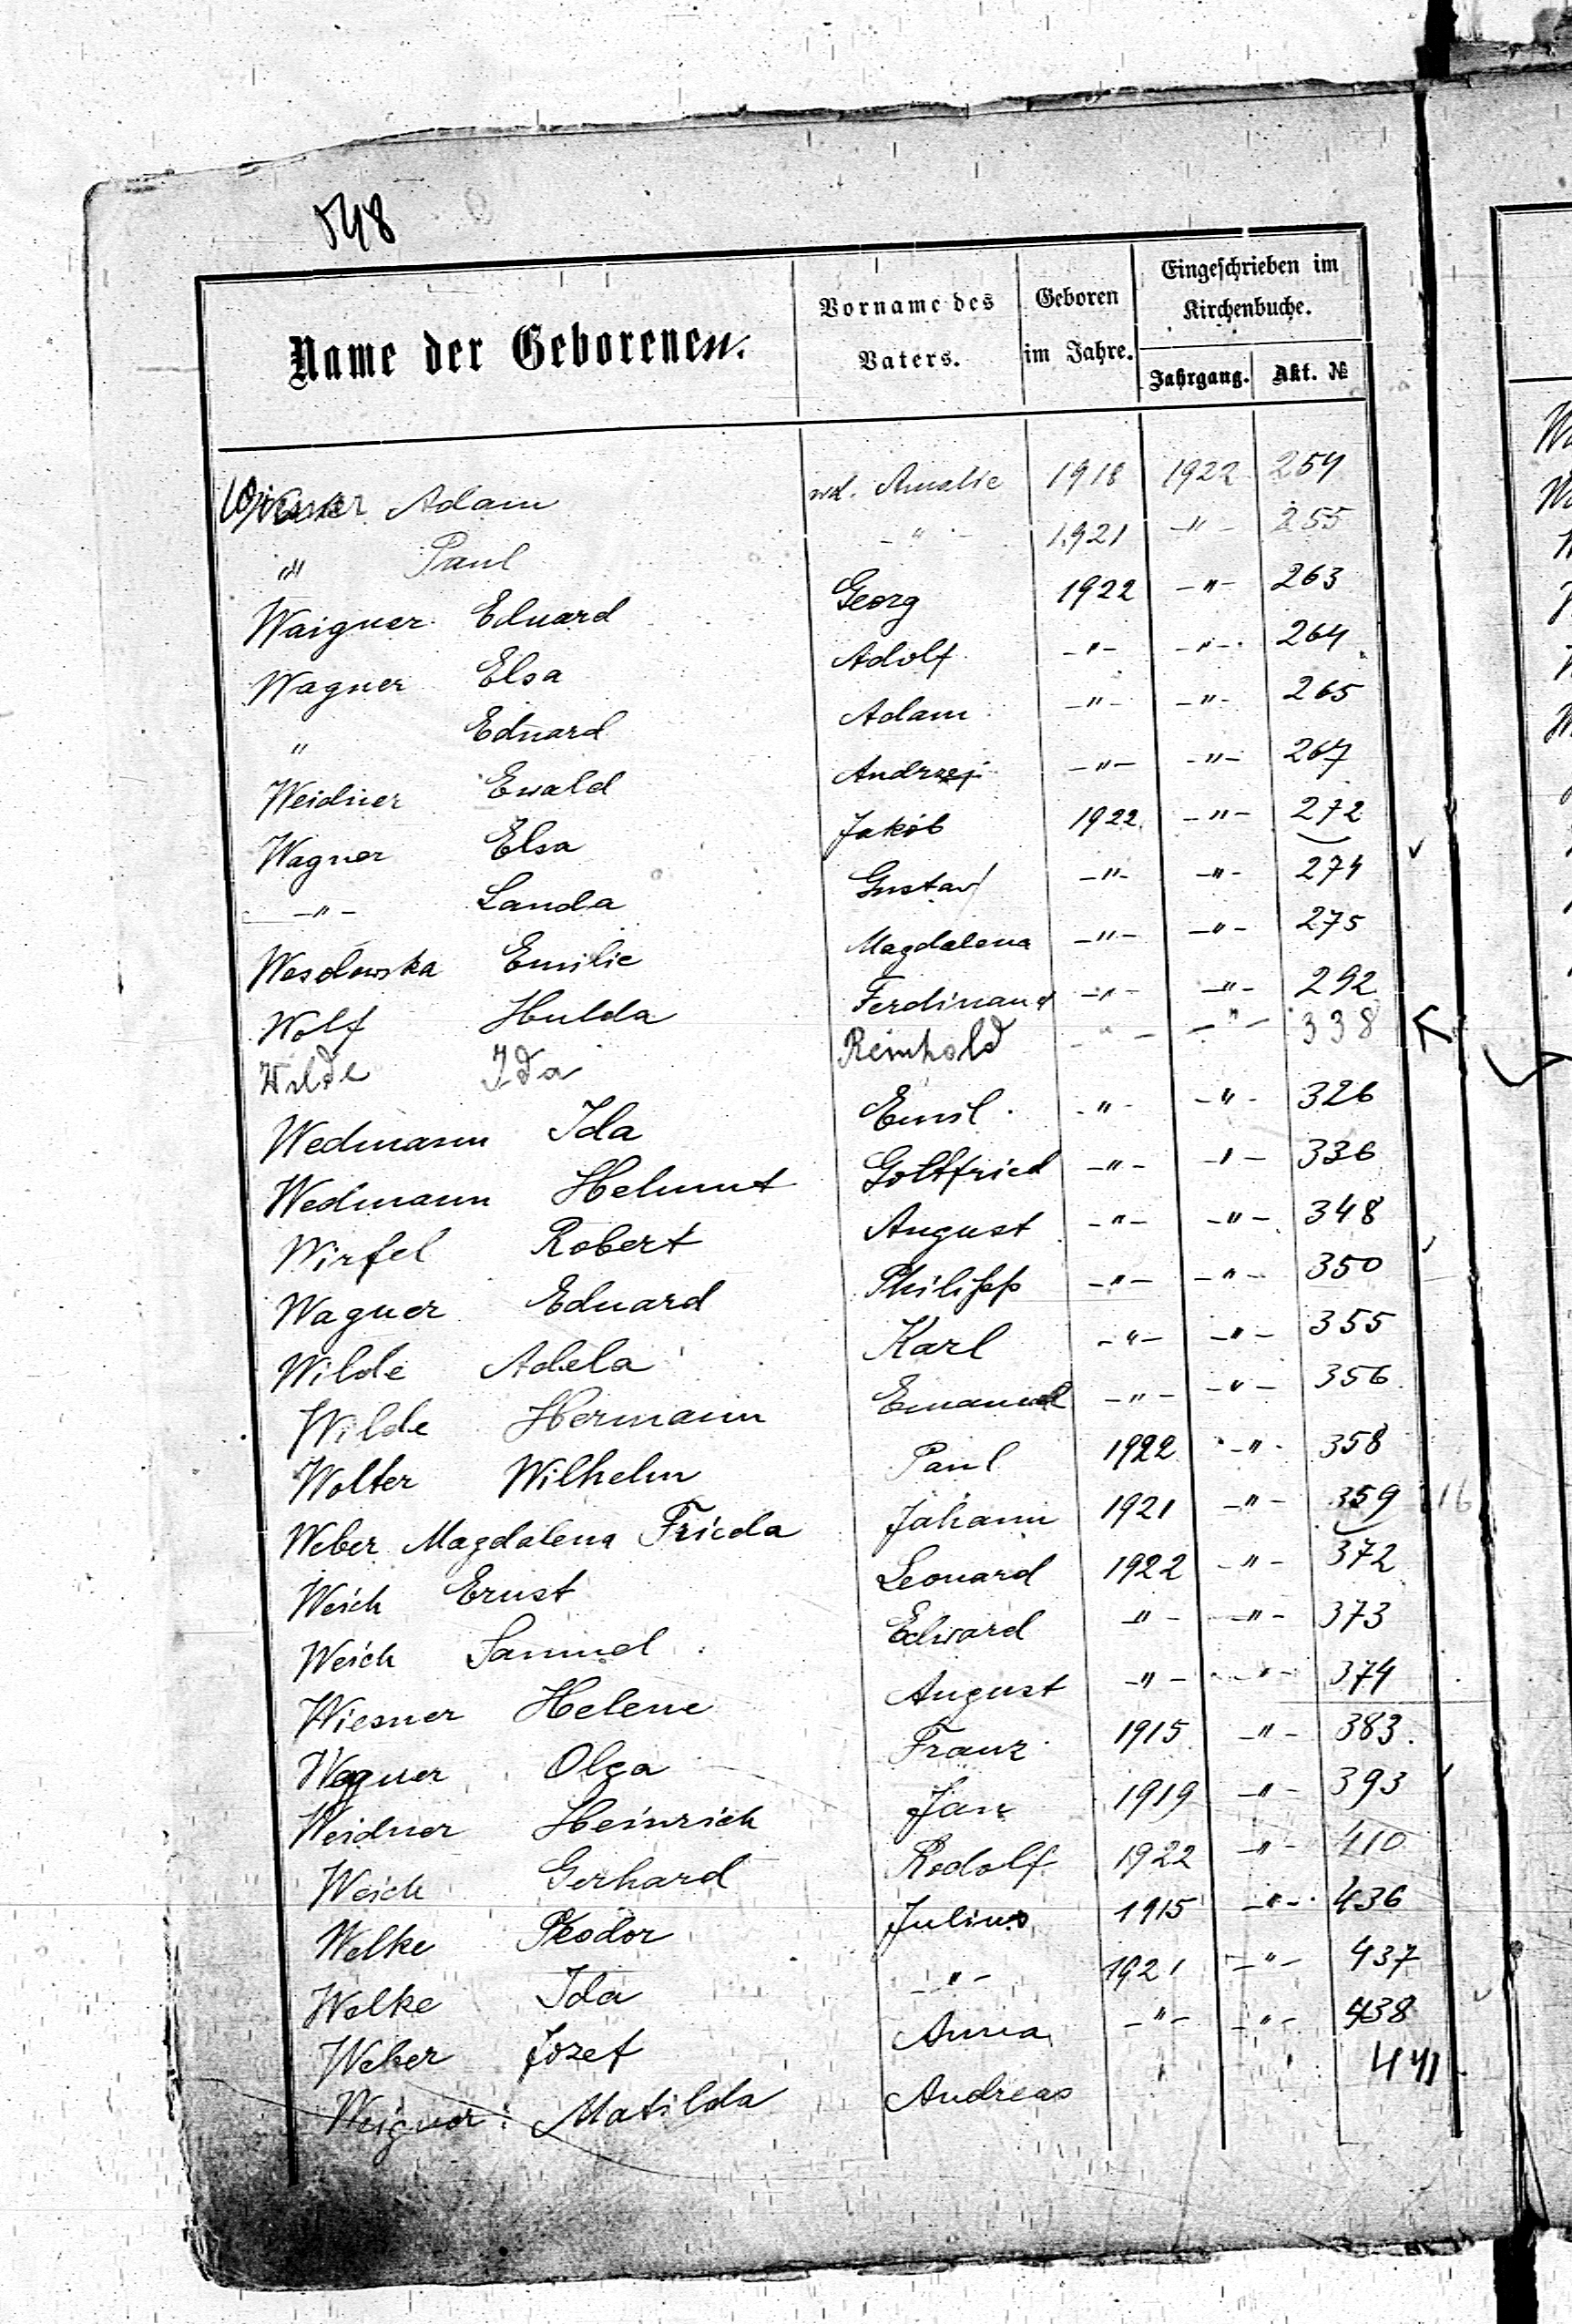 548
Name der Geborenen. Vorname des Vaters. Geboren im Jahre. Eingeschrieben im Kirchenbuche.
Jahrgang. Akt. №
Adam wd. Amalie 1918 1922 254
" Paul -"- 1921 -"- 255
Waigner Eduard Georg 1922 -"- 263
Wagner Elsa Adolf -"- -"- 264
" Eduard Adam -"- -"- 265
Weidner Ewald Andrzej -"- -"- 267
Wagner Elsa Jakób 1922 -"- 272
-"- Landa Gustav -"- -"- 274
Wesolowska Emilie Magdalena -"- -"- 275
Wolf Hulda Ferdinand -"- -"- 292
Wilde Ida Reinhold -"- -"- 338
Wedmann Ida Emil -"- -"- 326
Wedmann Helmut Gottfried -"- -"- 336
Wirfel Robert August -"- -"- 348
Wagner Eduard Philipp -"- -"- 350
Wilde Adela Karl -"- -"- 355
Wilde Hermann Emanuel -"- -"- 356
Wolter Wilhelm Paul 1922 -"- 358
Weber Magdalena Frieda Johann 1921 -"- 359 16
Weich Ernst Leonard 1922 -"- 372
Weich Samuel Edward -"- -"- 373
Wiesner Helene August -"- -"- 374
Wagner Olga Franz 1915 -"- 383.
Weidner Heinrich Jan 1919 -"- 393
Weich Gerhard Rodolf 1922 -"- 410
Welke Teodor Julius 1915 -"- 436
Welke Ida -"- 1921 -"- 437
Weber Jozef Anna -"- -"- 438
Weigner Matilda Andreas " " 441